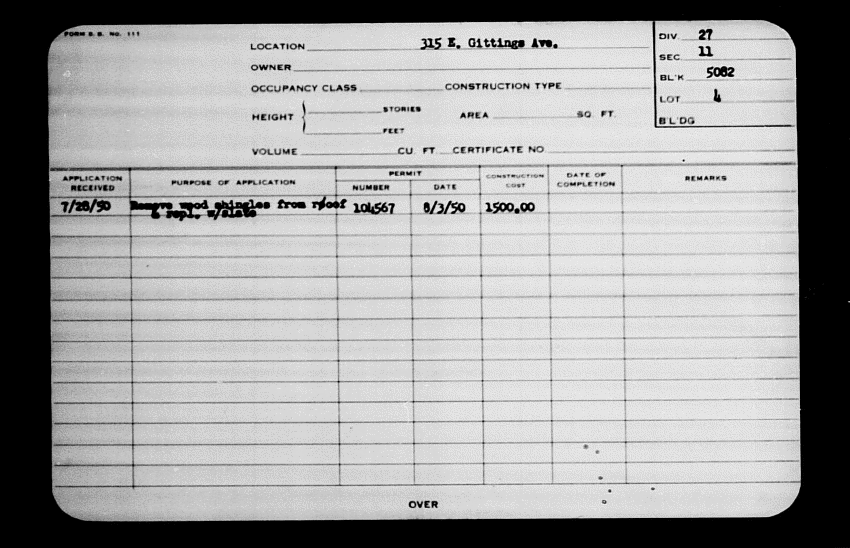 FORM B. B. NO. 111
LOCATION 315 E. Gittings Ave.
OWNER
OCCUPANCY CLASS CONSTRUCTION TYPE
HEIGHT STORIES AREA SQ. FT.
FEET
VOLUME CU. FT CERTIFICATE NO
DIV. 27
SEC 11
BL'K 5082
LOT 4
B'L'DG
APPLICATION RECEIVED PURPOSE OF APPLICATION PERMIT NUMBER DATE CONSTRUCTION COST DATE OF COMPLETION REMARKS
7/28/50 Remove wood shingles from roof 104567 8/3/50 1500.00
& repl. w/slate
OVER